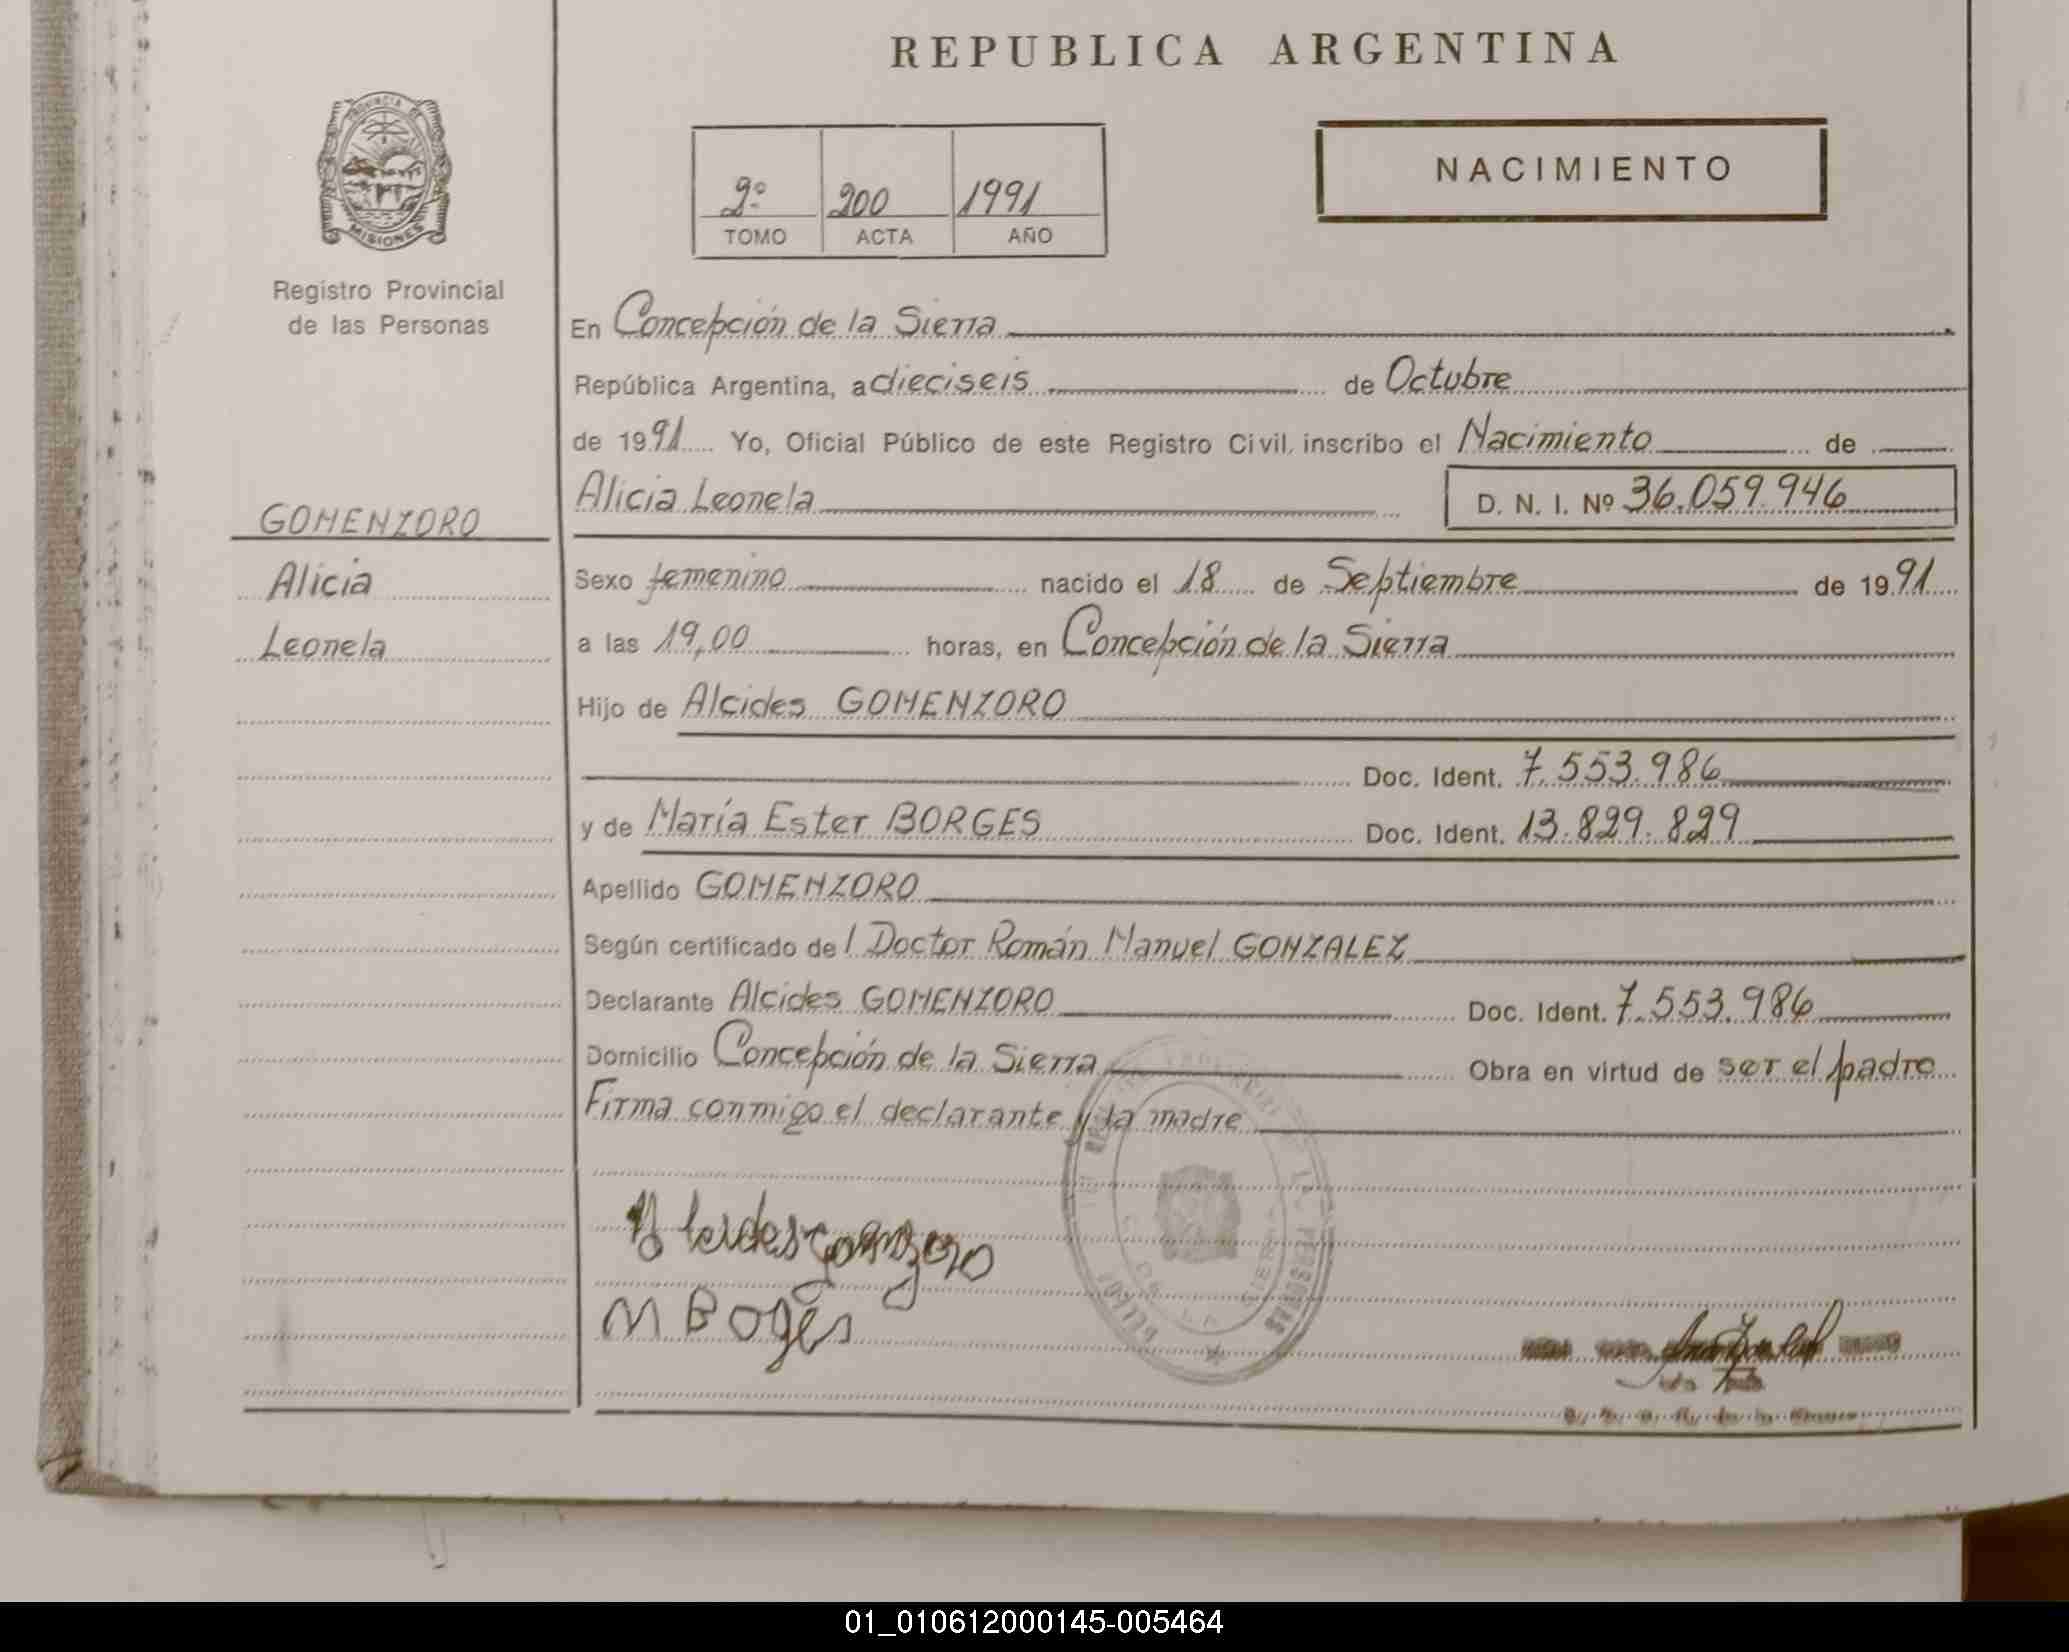 REPUBLICA ARGENTINA
PROVINCIA DE
MISIONES
Registro Provincial
de las Personas
2º 200 1991
TOMO ACTA AÑO
NACIMIENTO
En Concepción de la Sierra
República Argentina, a dieciseis de Octubre
de 1991 Yo, Oficial Público de este Registro Civil, inscribo el Nacimiento de
Alicia Leonela D. N. I. Nº 36.059.946
GOMENZORO
Alicia
Leonela
Sexo femenino nacido el 18 de Septiembre de 1991
a las 19,00 horas, en Concepción de la Sierra
Hijo de Alcides GOMENZORO
Doc. Ident. 7.553.986
y de María Ester BORGES Doc. Ident. 13.829.829
Apellido GOMENZORO
Según certificado del Doctor Román Manuel GONZALEZ
Declarante Alcides GOMENZORO Doc. Ident. 7.553.986
Domicilio Concepción de la Sierra Obra en virtud de ser el padre
Firma conmigo el declarante y la madre
M Boges
01_010612000145-005464